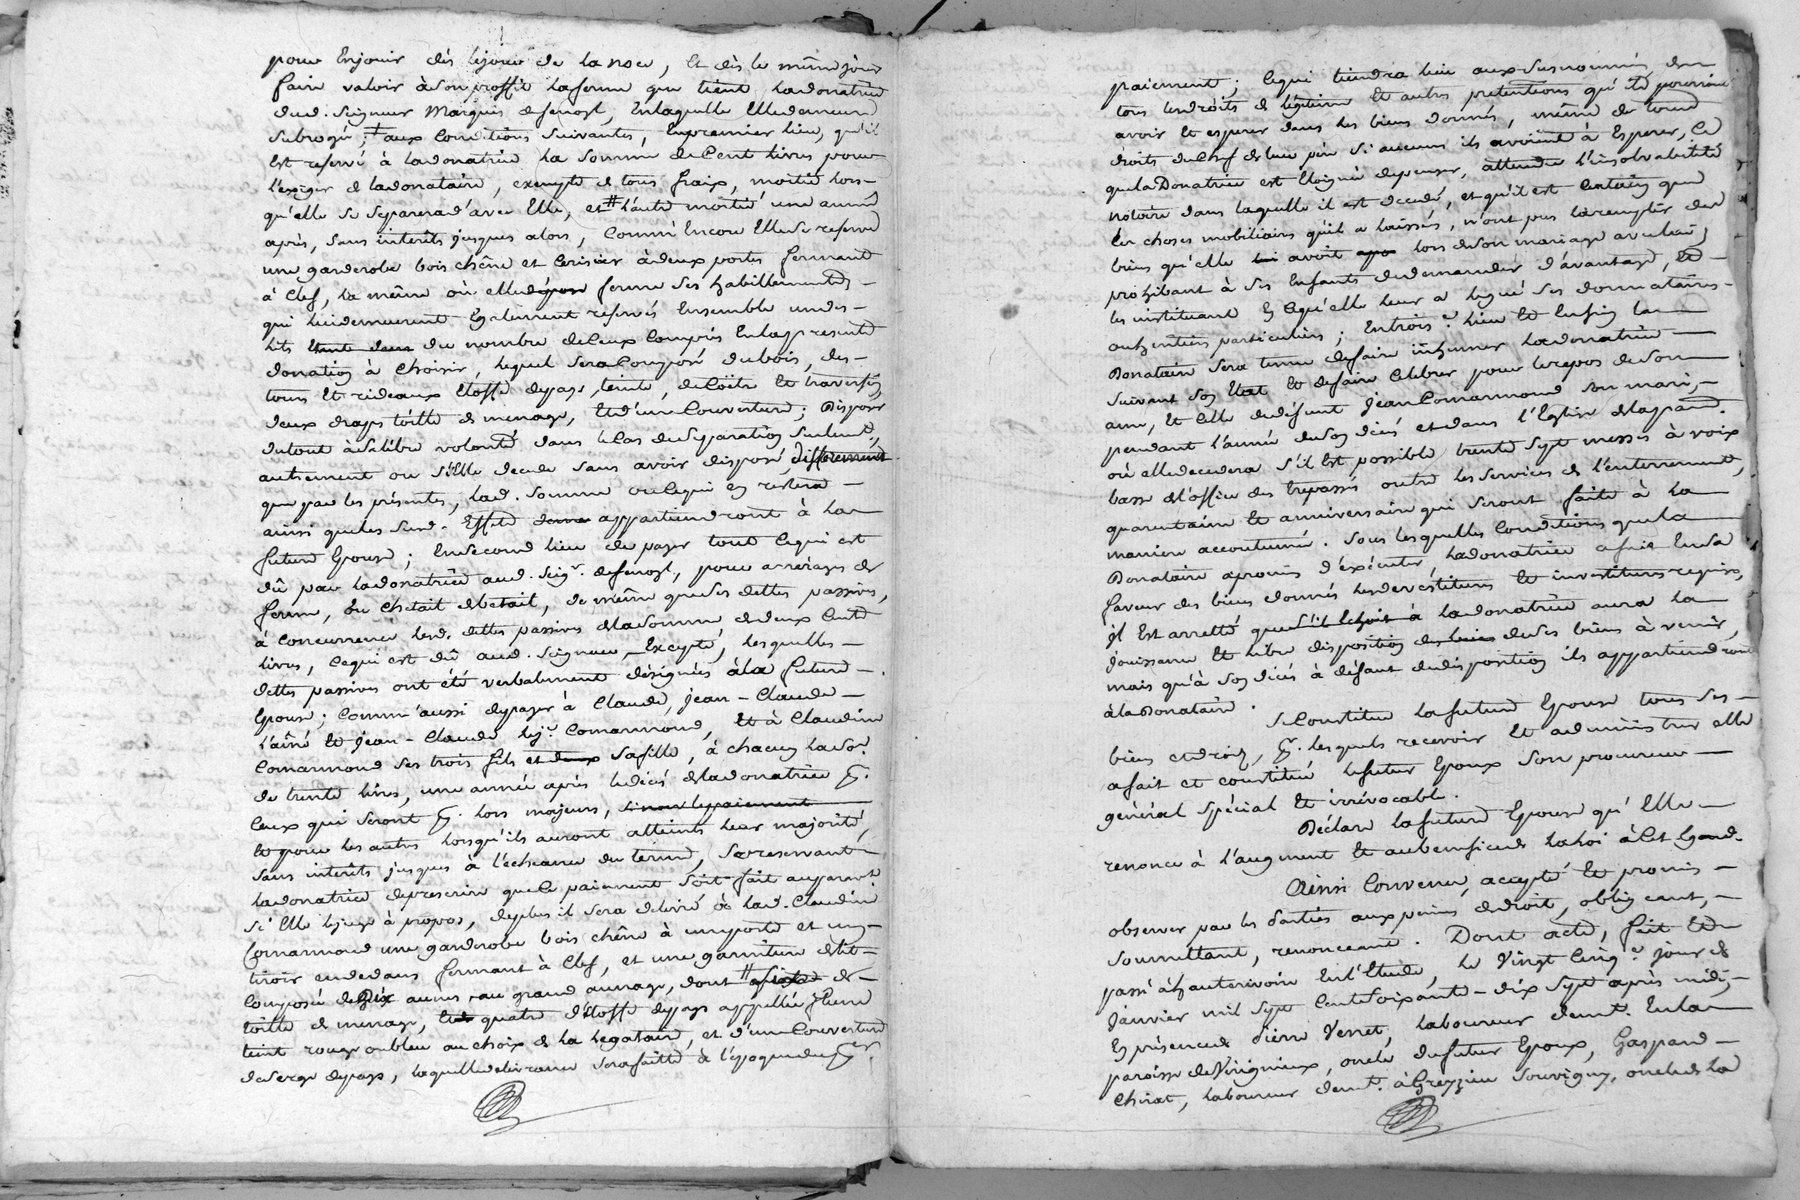 pour Enjouir dès lejour de la noce, Et dès le même jour
faire valoir à Son proffit laferme que tient Ladonatrice
dud. Seigneur Marquis defenoyl, Enlaquelle Elledemeure
Subrogé; ‡ aux Conditions Suivantes, Enpremier lieu, qu'il
Est reservé à ladonatrice la Somme deCent livres pour
l'exiger de ladonataire, exempte de tous fraix, moitié lors-
qu'elle se Separera d'avec Elle, et # l'autre moitié une année
après, Sans intérêts jusques alors, Comme Encore Ellese reserve
une garderobe bois chêne et Cerisier à deux portes fermant
à Clef, la même où elle ferme Ses habillements,-
qui luidemeurent Egalement reservés Ensemble undes-
lits du nombre deCeux Compris Enlapresente
donation à Choisir, lequel SeraComposé dubois, des-
tours Et rideaux Etoffe depays, teinte, deCoëtre Et traversin
deux draps toille de menage, Etd'une Couverture; Disposer
dutout à Salibre volonté dans leCas deSeparation Seulement,
autrement ou S'ille decede Sans avoir disposé differemment
que par les présentes, lad. Somme ou Cequi En restera -
ainsi queles Susd. Effets appartiendront à la
future Epouse; Ensecond lieu de payer tout Cequi est
dû par ladonatrice aud. Seigr. defenoyl, pour arrérages de
ferme, ou Chetail debetail, de même queSes dettes passives,
à Concurrence lesd. dettes passives delaSomme dedeux Cents
livres, Cequi est dû aud. Seigneur Excepté, lesquelles -
dettes passives ont été verbalement désignées àla future -
Epouse; Comm'aussi depayer à Claude, jean-Claude -
l'aîné Et jean-Claude lej.e Comarmond, Et à Claudine
Comarmond Ses trois fils et Safille, à chacun laSo.e
de trente livres, une année après ledécès deladonatrice p.
Ceux qui Seront p. lors majeurs, Sinon lepaiement
Et pour les autres lorsqu'ils auront atteints leur majorité,
Sans intérêts jusques à l'échéance du terme, Sereservant-
ladonatrice deprescrire quele paiement Soit fait auparavt
Si Elle lejuge à propos, deplus il Sera délivré à lad. Claudine
Comarmond une garderobe bois chêne à uneporte et un-
tiroir endedans fermant à Clef, et une garniture delit-
Composée deDix aunes, au grand aunage, dont # de-
toille de menage, quatre d'Etoffe depays appellée
teint rouge oubleu auchoix de la legataire, et d'uneCouverture
deSerge depays, laquelledelivrance Serafaitte à l'époque
paiement; Cequi tiendra lieu aux Susnommés de
tous lesdroits de légitime Et autres pretentions qu'ils pourroient
avoir Et esperer dans les biens donnés, même de tous
droits duChef de leur père Si aucuns ils avoient à Esperer, Ce
que la Donatrice est Eloignée depenser, attendu l'insolvabilité
notoire dans laquelle il est decedé, et qu'il est Certain que
les choses mobiliaires qu'il a laissées, n'ont pas laremplir des
biens qu'elle avoit lors deSon mariage aveclui,
prohibant à Ses Enfants dedemander d'avantage, Et -
les instituant EnCequ'elle leur a legué Ses donnataires-
outhentiers particuliers; Entrois.e lieu Et Enfin la
Donataire Sera tenue defaire inhumer ladonatrice -
Suivant Son Etat Et defaire Celebrer pour lerepos deSon
ame, Et Celle dudéfunt jean Comarmond Son mari,-
pendant l'année duSon décès et dans l'Eglise
où elledecedera S'il Est possible, trente Sept messes à voix
basse del'office des trepassés outre les Services de l'enterrement,
quarantaine Et anniversaire qui Seront faits à la
maniere accoutumée. Sous lesquelles Conditions quela
Donataire apromis d'exécuter, ladonatrice afait EnSa
faveur des biens donnés lesdevestitures Et investitures requises,
il Est arretté à ladonatrice aura la
jouissance Et libre disposition deSes biens à venir,
mais qu'à Son décès à défaut dedisposition ils appartiendront
à laDonataire.
SeConstitue lafuture Epouse tous Ses -
biens etdroits, p. lesquels recevoir Et administrer elle
afait et constitué lefutur Epoux Son procureur -
général Spécial Et irrévocable.
Déclare lafuture Epouse qu'Elle -
renonce à l'augment Et aubeneficede laloi àCet Egard.
Ainsi Convenu, accepté Et promis -
observer par les Parties auxpeines dedroit, obligeant,-
Soumettant, renonceant. Dont acte, fait Et
passé àhauterivoire Enl'Etude, le Vingt Cinq.e jour de
Janvier mil Sept CentSoixante-dix Sept après midi,-
En présencede Pierre Verret, laboureur demt. Enla-
paroisse deVirignieux, oncle dufutur Epoux, Gaspard -
Chirat, laboureur demt. àGrezzieu Souvigny, onclede la